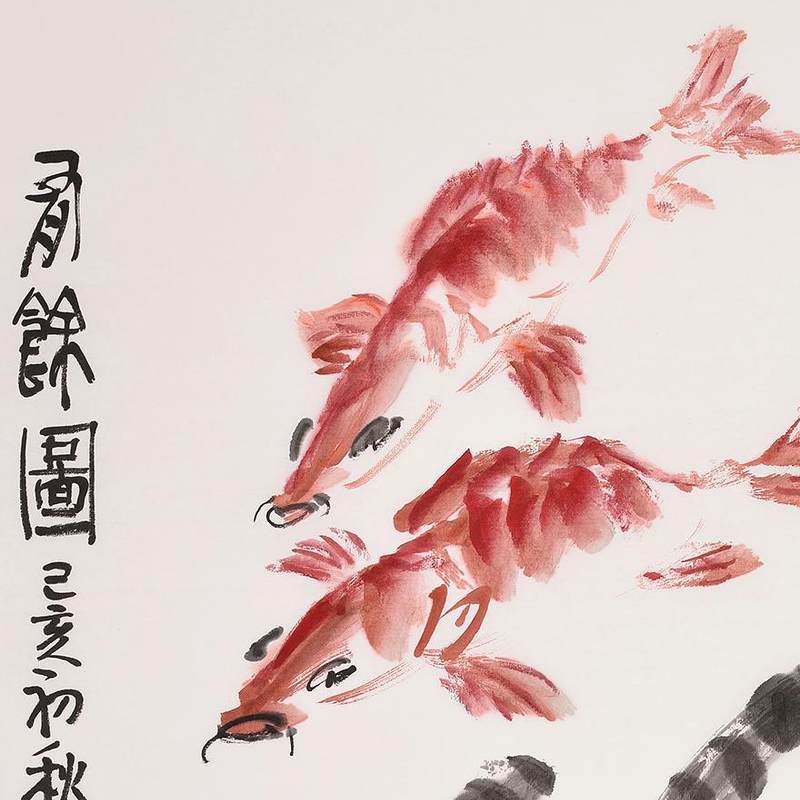 有餘圖己亥初秋